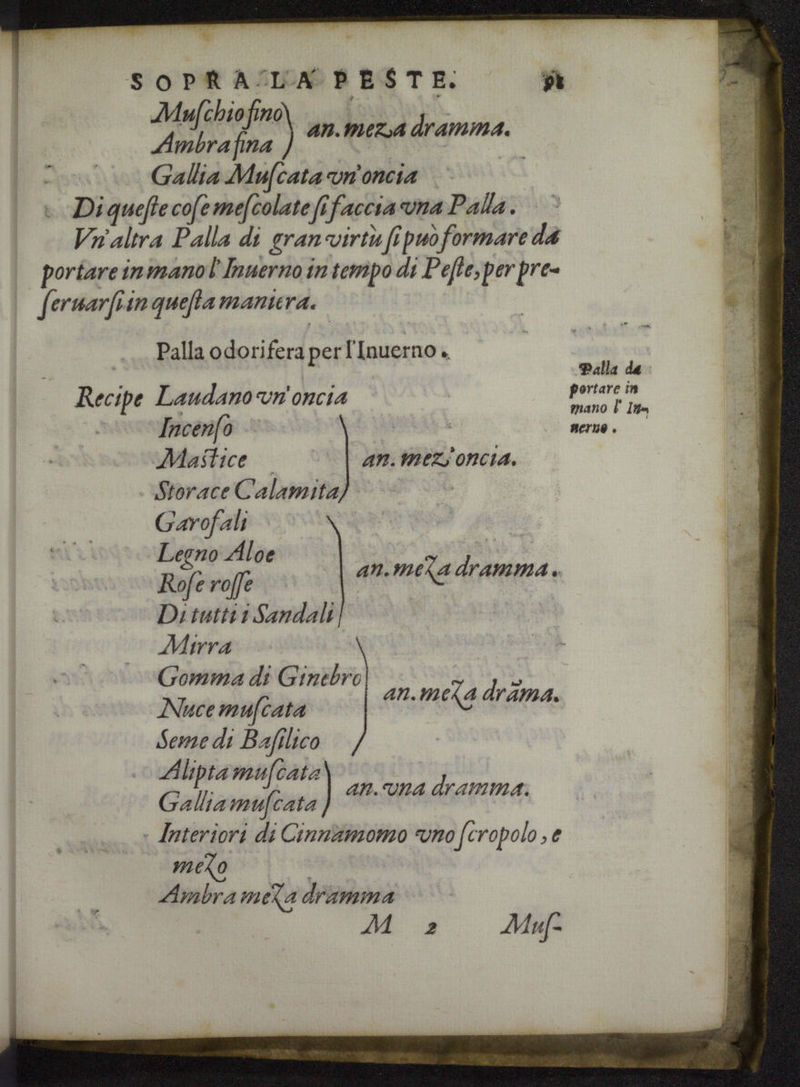 SOPRA LA PESTE. 91
Muſchio fino
Ambra fina } an. meza dramma.
Gallia Muſcata vn'oncia
Di queſte coſe meſcolate ſi faccia vna Palla.
Vn'altra Palla di gran virtù ſi può formare da
portare in mano l'Inuerno in tempo di Peſte, per pre-
ſeruarſi in queſta maniera.
Palla odorifera per l'Inuerno.
Palla da
portare in
mano l' In-
uerno.
Recipe Laudano vn'oncia
Incenſo
Maſtice } an. mez'oncia.
Storace Calamita
Garofali
Legno Aloe
Roſe roſſe } an. meza dramma.
Di tutti i Sandali
Mirra
Gomma di Ginebro
Nuce muſcata } an. meza drãma.
Seme di Baſilico
Alipta muſcata
Gallia muſcata } an. vna dramma.
Interiori di Cinnamomo vno ſcropolo, e
mezo
Ambra meza dramma
M 2 Muſ-